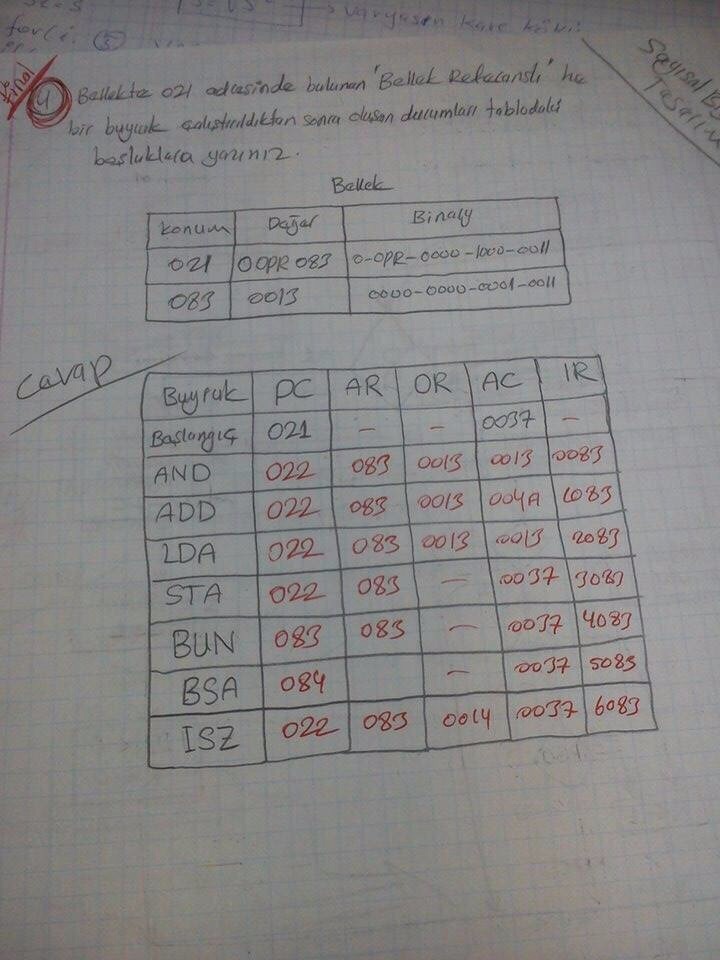 Final
4 Bellekte 021 adresinde bulunan 'Bellek Referanslı' he
bir buyruk çalıştırıldıktan sonra oluşan durumları tablodaki
boşluklara yazınız.
Sayısal
Tasarım
Bellek
Konum Değer Binary
021 0OPR 083 0-OPR-0000-1000-0011
083 0013 0000-0000-0001-0011
Cavap
Buyruk PC AR OR AC IR
Başlangıç 021 — — 0037 —
AND 022 083 0013 0013 0083
ADD 022 083 0013 004A 1083
LDA 022 083 0013 0013 2083
STA 022 083 — 0037 3083
BUN 083 083 — 0037 4083
BSA 084 — 0037 5083
ISZ 022 083 0014 0037 6083